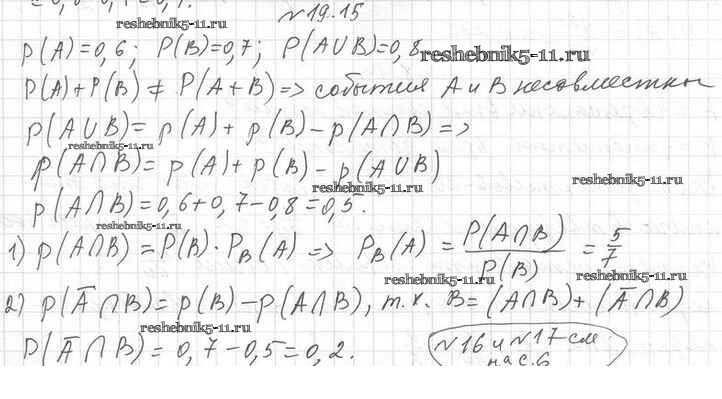 №19.15
reshebnik5-11.ru
P(A)=0,6; P(B)=0,7; P(A∪B)=0,8
reshebnik5-11.ru
P(A)+P(B)≠P(A+B)=> события A и B несовместны
P(A∪B)=p(A)+p(B)-p(A∩B)=>
reshebnik5-11.ru
p(A∩B)=p(A)+p(B)-p(A∪B)
reshebnik5-11.ru
reshebnik5-11.ru
p(A∩B)=0,6+0,7-0,8=0,5.
reshebnik5-11.ru
1) p(A∩B)=P(B)·P_B(A) => P_B(A) = P(A∩B)/P(B) = 5/7
reshebnik5-11.ru
reshebnik5-11.ru
2) p(Ā∩B)=p(B)-p(A∩B), т.к. B=(A∩B)+(Ā∩B)
reshebnik5-11.ru
P(Ā∩B)=0,7-0,5=0,2.
№16 и №17 см
на с.6